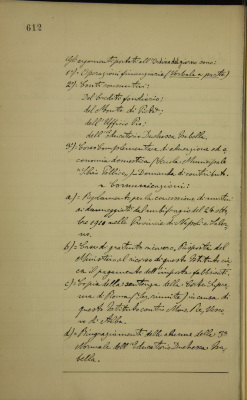 612
Gli argomenti portati all'Ordine del giorno sono:
1°)- Operazioni finanziarie (Verbale a parte)
2°)- Conti consuntivi:
Del Credito fondiario;
del Monte di Pietà;
dell'Ufficio Pio;
dell'Educatorio Duchessa Isabella.
3°)- Corso Complementare di educazione ed e-
conomia domestica (Scuola Municipale
"Silvio Pellico"). Domanda di contributo.
e Comunicazioni:
a)= Regolamento per la concessione di mutui
ai danneggiati dal nubifragio del 24 Otto-
bre 1910 nelle Provincie di Napoli e Saler-
no.
b)= Casa di gratuito ricovero. Risposta del
Ministero al ricorso di questo Istituto cir-
ca il pagamento dell'imposta fabbricati.
c)= Copia della sentenza della Corte Supre-
ma di Roma (Sez. unite) in causa di
questo Istituto contro Mons. Re, Vesco-
vo di Alba.
d)= Ringraziamenti delle alunne della
Normale dell'Educatorio Duchessa Isa-
bella.